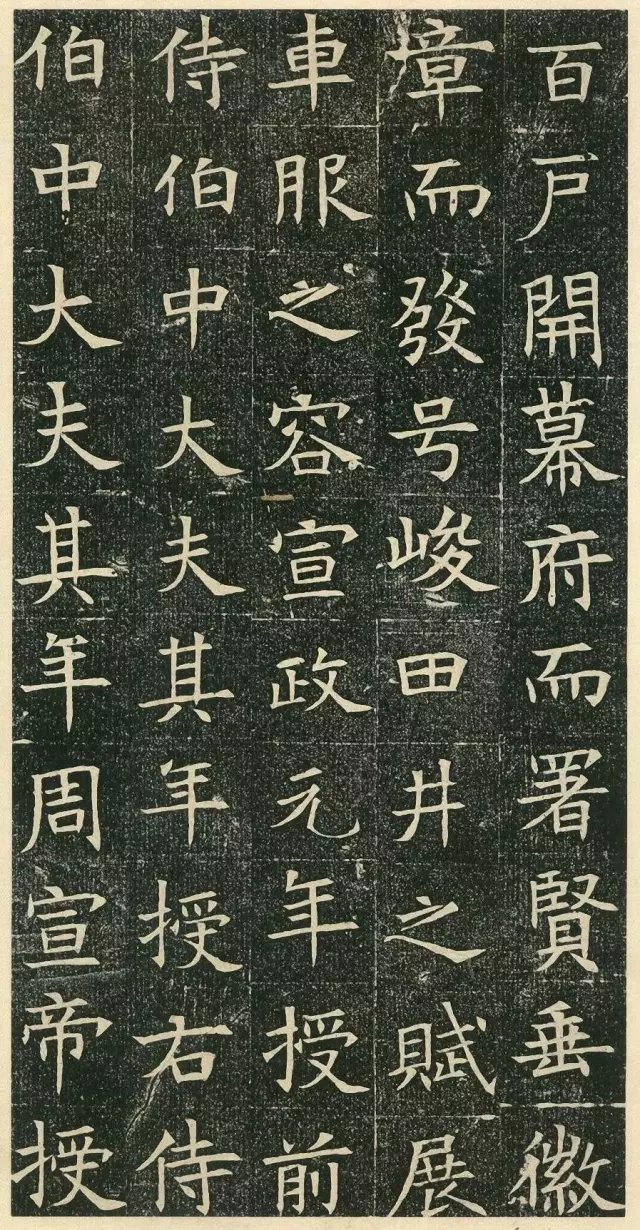 百戶開幕府而署賢垂徽
章而發号峻田井之賦展
車服之容宣政元年授前
侍伯中大夫其年授右侍
伯中大夫其年周宣帝授